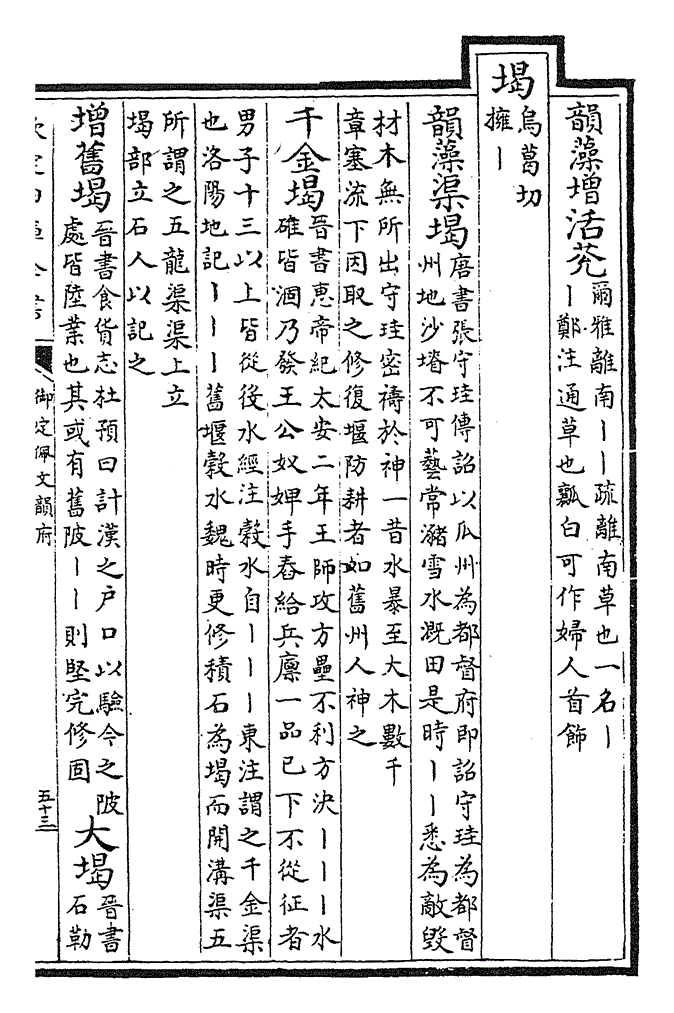 韻藻增活莌
爾雅離南丨丨疏離南草也一名丨
丨鄭注通草也瓤白可作婦人首飾
堨
烏葛切
擁丨
韻藻渠堨
唐書張守珪傳詔以瓜州為都督府即詔守珪為都督
州地沙塉不可藝常瀦雪水溉田是時丨丨悉為敵毀
材木無所出守珪密禱於神一昔水暴至大木數千
章塞流下因取之修復堰防耕者如舊州人神之
千金堨
晉書惠帝紀太安二年王師攻方壘不利方決丨丨丨水
碓皆涸乃發王公奴婢手舂給兵廩一品已下不從征者
男子十三以上皆從役水經注穀水自丨丨丨東注謂之千金渠
也洛陽地記丨丨丨舊堰穀水魏時更修積石為堨而開溝渠五
所謂之五龍渠渠上立
堨部立石人以記之
增舊堨
晉書食貨志杜預曰計漢之戶口以驗今之陂
處皆陸業也其或有舊陂丨丨則堅完修固
大堨
晉書
石勒
欽定四庫全書
御定佩文韻府
五十三